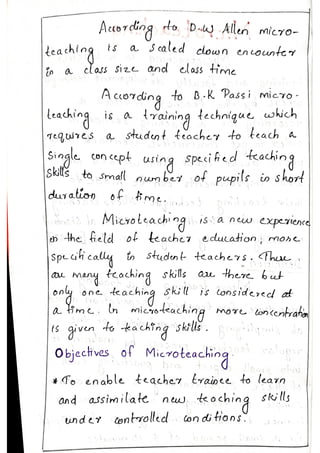 According to D.W Allen micro-
teaching is a scaled down encounter
in a class size and class time
According to B.K Passi micro-
teaching is a training technique which
requires a student teacher to teach a
Single concept using specified teaching
Skills to small number of pupils in short
duration of time.
Microteaching is a new experience
in the field of teacher education, more
specifically in student teachers. There
are many teaching skills are there but
only one teaching skill is considered at
a time. In microteaching more concentration
is given to teaching skills.
Objectives of Microteaching
* To enable teacher trainee to learn
and assimilate new teaching skills
under controlled conditions.